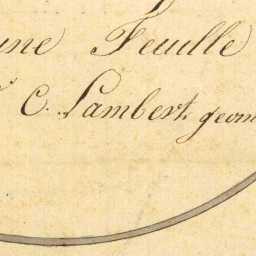 une Feuille
C. Lambert. geom